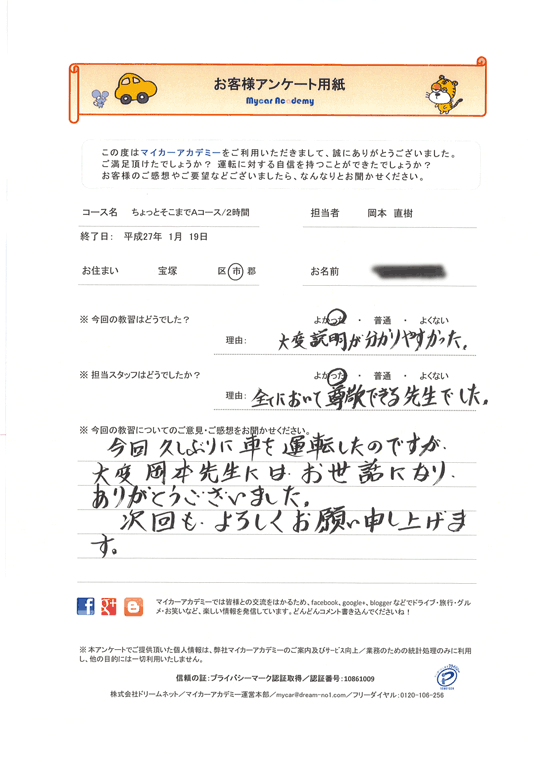 お客様アンケート用紙
Mycar Academy
この度はマイカーアカデミーをご利用いただきまして、誠にありがとうございました。
ご満足頂けたでしょうか？ 運転に対する自信を持つことができたでしょうか？
お客様のご感想やご要望などございましたら、なんなりとお聞かせください。
コース名 ちょっとそこまでAコース/2時間 担当者 岡本 直樹
終了日： 平成27年 1月 19日
お住まい 宝塚 区・市・郡 お名前
※ 今回の教習はどうでした？ よかった ・ 普通 ・ よくない
理由： 大変説明が分かりやすかった。
※ 担当スタッフはどうでしたか？ よかった ・ 普通 ・ よくない
理由： 全てにおいて尊敬できる先生でした。
※ 今回の教習についてのご意見・ご感想をお聞かせください。
今回久しぶりに車を運転したのですが、
大変岡本先生にはお世話になり、
ありがとうございました。
次回も、よろしくお願い申し上げま
す。
マイカーアカデミーでは皆様との交流をはかるため、facebook、google+、blogger などでドライブ・旅行・グル
メ・お笑いなど、楽しい情報を発信しています。どんどんコメント書き込んでくださいね！
※ 本アンケートでご提供頂いた個人情報は、弊社マイカーアカデミーのご案内及びサービス向上／業務のための統計処理のみに利用
し、他の目的には一切利用いたしません。
信頼の証：プライバシーマーク認証取得／認証番号：10861009
株式会社ドリームネット／マイカーアカデミー運営本部／mycar@dream-no1.com／フリーダイヤル：0120-106-256